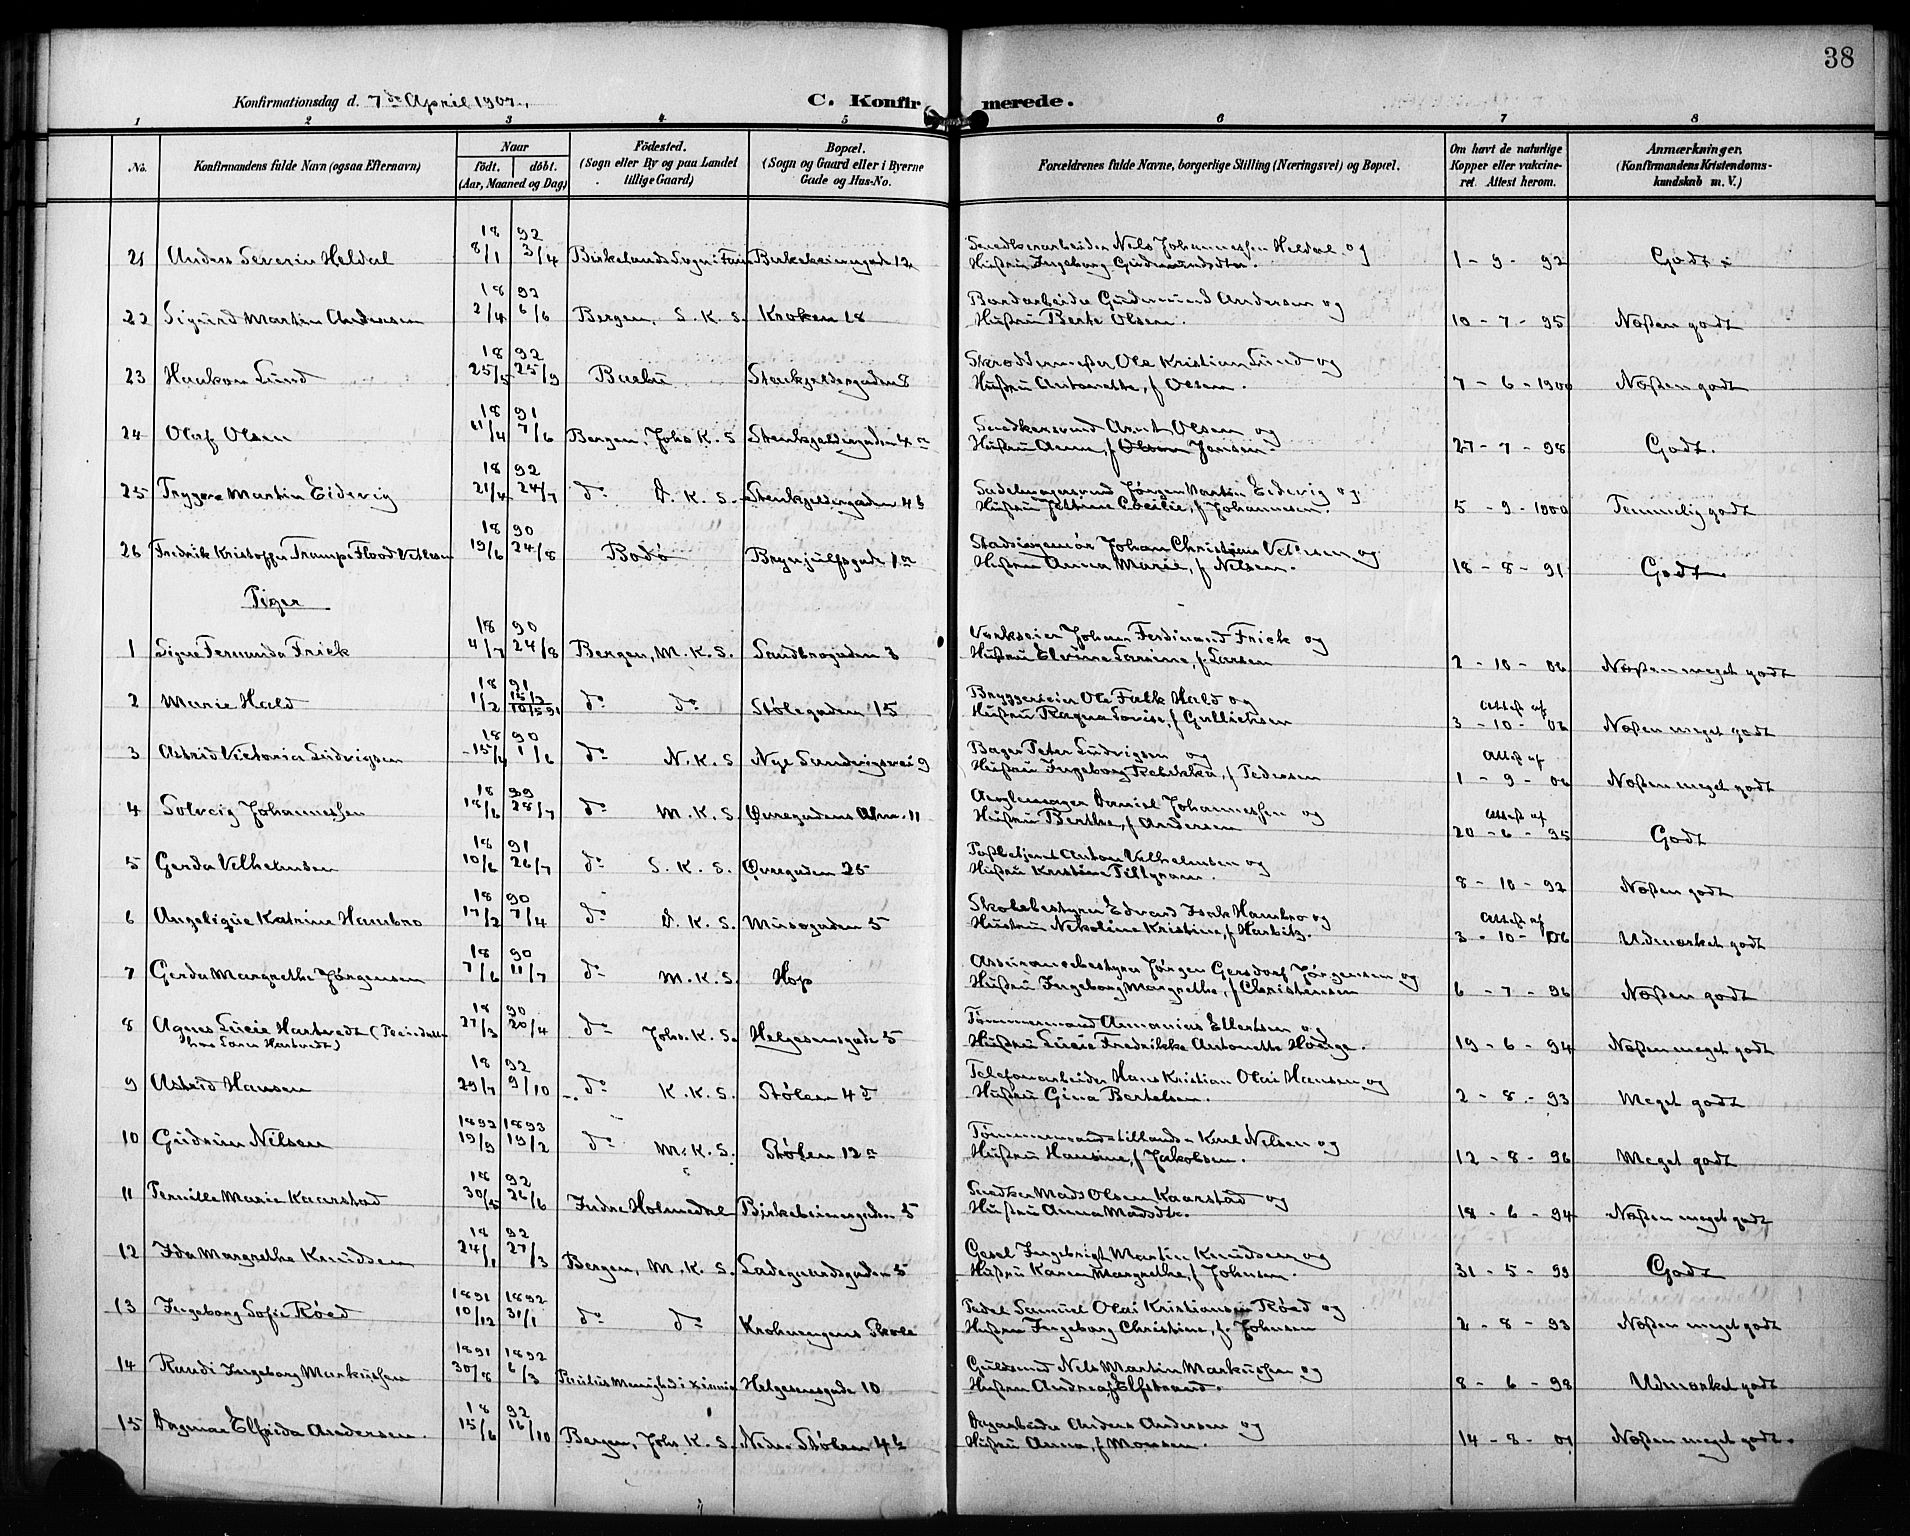 38
Konfirmationsdag d. 7de April 1907. C. Konfirmerede.
1 2 3 4 5 6 7 8
No. Konfirmandens fulde Navn (ogsaa Efternavn) Naar født. døbt. (Aar, Maaned og Dag) Fødested. (Sogn eller By og paa Landet tillige Gaard) Bopæl. (Sogn og Gaard eller i Byerne Gade og Hus-No. Forældrenes fulde Navne, borgerlige Stilling (Næringsvei) og Bopæl. Om havt de naturlige Kopper eller vaccineret Attest herom. Anmærkninger. (Konfirmandens Kristendomskundskab m. V.)
18 92
21 Anders Severin Heldal 8/1 3/4 Birkelands Sogn i Fane Birkebeinergade 12 Snedkerarbeider Nels Johannessen Heldal og
Hustru Ingeborg Gudmundsdtr. 1-9-92 Godt
18 92
22 Sigurd Martin Andersen 2/4 6/6 Bergen, S. K. S. Kroken 18 Bordarbeider Gudmund Andersen og
Hustru Berte Olsen. 10-7-95 Næsten godt
18 92
23 Haakon Lund 25/5 25/9 Buebu Stenkjeldergaden 8 Skræddermester Ole Kristian Lund og
Hustru Antonette, f Olsen. 7-6-1900 Næsten godt
18 91
24 Olaf Olsen 11/4 7/6 Bergen, Johs K. S Stenkjeldergaden 4a Snedkersvend Arnt Olsen og
Hustru Anna, f Olsen Jansen. 27-7-98 Godt.
18 92
25 Trygve Martin Eidevig 21/4 24/7 do D. K. S. Stenkjeldergaden 4b Sadelmagersvend Jørgen Martin Eidevig og
Hustru Jettine Cecilie, f Johannesen. 5-9-1000 Temmelig godt
18 90
26 Fredrik Kristoffer Tramps Flood Vetlesen 19/6 24/8 Bodø Brynjulfsgade 1a Stadsingeniør Johan Christian Vetlesen og
Hustru Anna Marie, f Nelsen. 18-8-91 Godt
Piger
18 90
1 Signe Fernanda Frick 4/7 24/8 Bergen, M. K. S. Sandbrogaden 3 Værkseier Johan Ferdinand Frick og
Hustru Elvine Larsine, f Larsen 2-10-06 Næsten meget godt
18 91
2 Marie Hald 1/2 15/3 10/5 91 do do Stølegaden 15 Bryggerieier Ole Falk Hald og
Hustru Ragna Lovise, f Gullichsen Attest af 3-10-06 Næsten meget godt
18 90
3 Astrid Victoria Ludvigsen 15/4 1/6 do N. K. S Nye Sandvigsvei 9 Bager Peter Ludvigsen og
Hustru Ingeborg Rebekka, f Pedersen Attest af 1-9-06 Næsten meget godt
18
4 Solveig Johannessen 18/6 28/7 do M. K. S. Øvregadens Alm. 11 Daniel Johannessen og
Hustru Berthe, f Andersen Attest af 20-6-95 Godt
18 91
5 Gerda Vilhelmsen 10/6 26/7 do S. K. S. Øvregaden 25 Postbetjent Anton Vilhelmsen og
Hustru Kristine 8-10-92 Næsten godt
18 90
6 Angelique Katrine Hambro 17/2 7/4 do D. K. S. Murogaden 5 Skolebestyrer Edvard Isak Hambro og
Hustru Nekoline Kristine, f Harbitz. Attest af 3-10-06 Udmærket godt
18 90
7 Gerda Margrethe Jørgensen 7/6 11/7 do M. K. S. Hop Assurancebestyrer Jørgen Gersdorf Jørgensen og
Hustru Ingeborg Margrethe, f Christensen 6-7-96 Næsten godt
18 90
8 Agnes Lucie Hartvedt (Pleiedatter hos Hartvedt) 27/3 20/4 do Johs. K. S. Helgesensgade 5 Tømmermand Annanias Ellertsen og
Hustru Lucie Fredrikke Antonette Hovge. 19-6-94 Næsten meget godt
18 92
9 Astrid Hansen 29/7 9/10 do K. K. S. Stølen 4d Telefonarbeider Hans Kristian Olai Hansen og
Hustru Gina Bertelsen. 2-8-93 Meget godt
1892 1893
10 Gudrun Nilsen 19/9 19/2 do M. K. S. Stølen 12a Tømmermand tillands Karl Nelsen og
Hustru Hansine, f Jakobsen. 12-8-96 Meget godt
18 92
11 Pernille Marie Kaarstad 30/5 26/6 Indre Holmedal Birkebeinergaden 5 Snedker Mads Olsen Kaarstad og
Hustru Anna Madsdtr. 18-6-94 Næsten meget godt
18 92
12 Ida Margrethe Knudsen 24/1 27/3 Bergen, M. K. S. Ladegaardsgaden 5 Gesel Ingebrigt Martin Knudsen og
Hustru Karen Margrethe, f Johnsen. 31-5-99 Godt
1891 1892
13 Ingeborg Sofie Røed 10/12 31/1 do do Krohnengens Skole Pedel Samuel Olai Kristiansen Røed og
Hustru Ingeborg Christine, f. Johnsen 2-8-93 Næsten meget godt
1891 1892
14 Randi Ingeborg Markussen 30/8 6/3 Paulus Menighed i Helgesensgade 10 Guldsmed Nels Martin Markussen og
Hustru Andrea, f Elfstrand. 8-6-98 Udmærket godt
18 92
15 Dagmar Elfrida Andersen. 15/6 16/10 Bergen, Johs. K. S. Nedre Stølen 4b Dagarbeider Anders Andersen og
Hustru Anna, f Monsen. 14-8-01 Næsten meget godt.